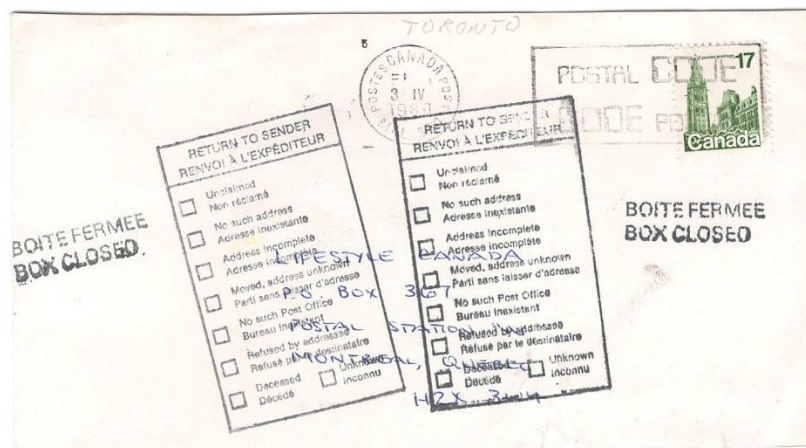 TORONTO
5
POSTES CANADA POST
3 IV
POSTAL CODE
CODE
17
Canada
RETURN TO SENDER
RENVOI À L'EXPÉDITEUR
Unclaimed
Non réclamé
No such address
Adresse inexistante
Address Incomplete
Adresse incomplète
Moved, address unknown
Parti sans laisser d'adresse
No such Post Office
Bureau inexistent
Refused by addressee
Refusé par le destinataire
Deceased
Décédé
Unknown
Inconnu
RETURN TO SENDER
RENVOI À L'EXPÉDITEUR
Unclaimed
Non réclamé
No such address
Adresse inexistante
Address Incomplete
Adresse incomplète
Moved, address unknown
Parti sans laisser d'adresse
No such Post Office
Bureau inexistent
Refused by addressee
Refusé par le destinataire
Deceased
Décédé
Unknown
Inconnu
BOITE FERMEE
BOX CLOSED
BOITE FERMEE
BOX CLOSED
LIFESTYLE CANADA
P.O. BOX 367
POSTAL STATION
MONTREAL, QUEBEC
H2X